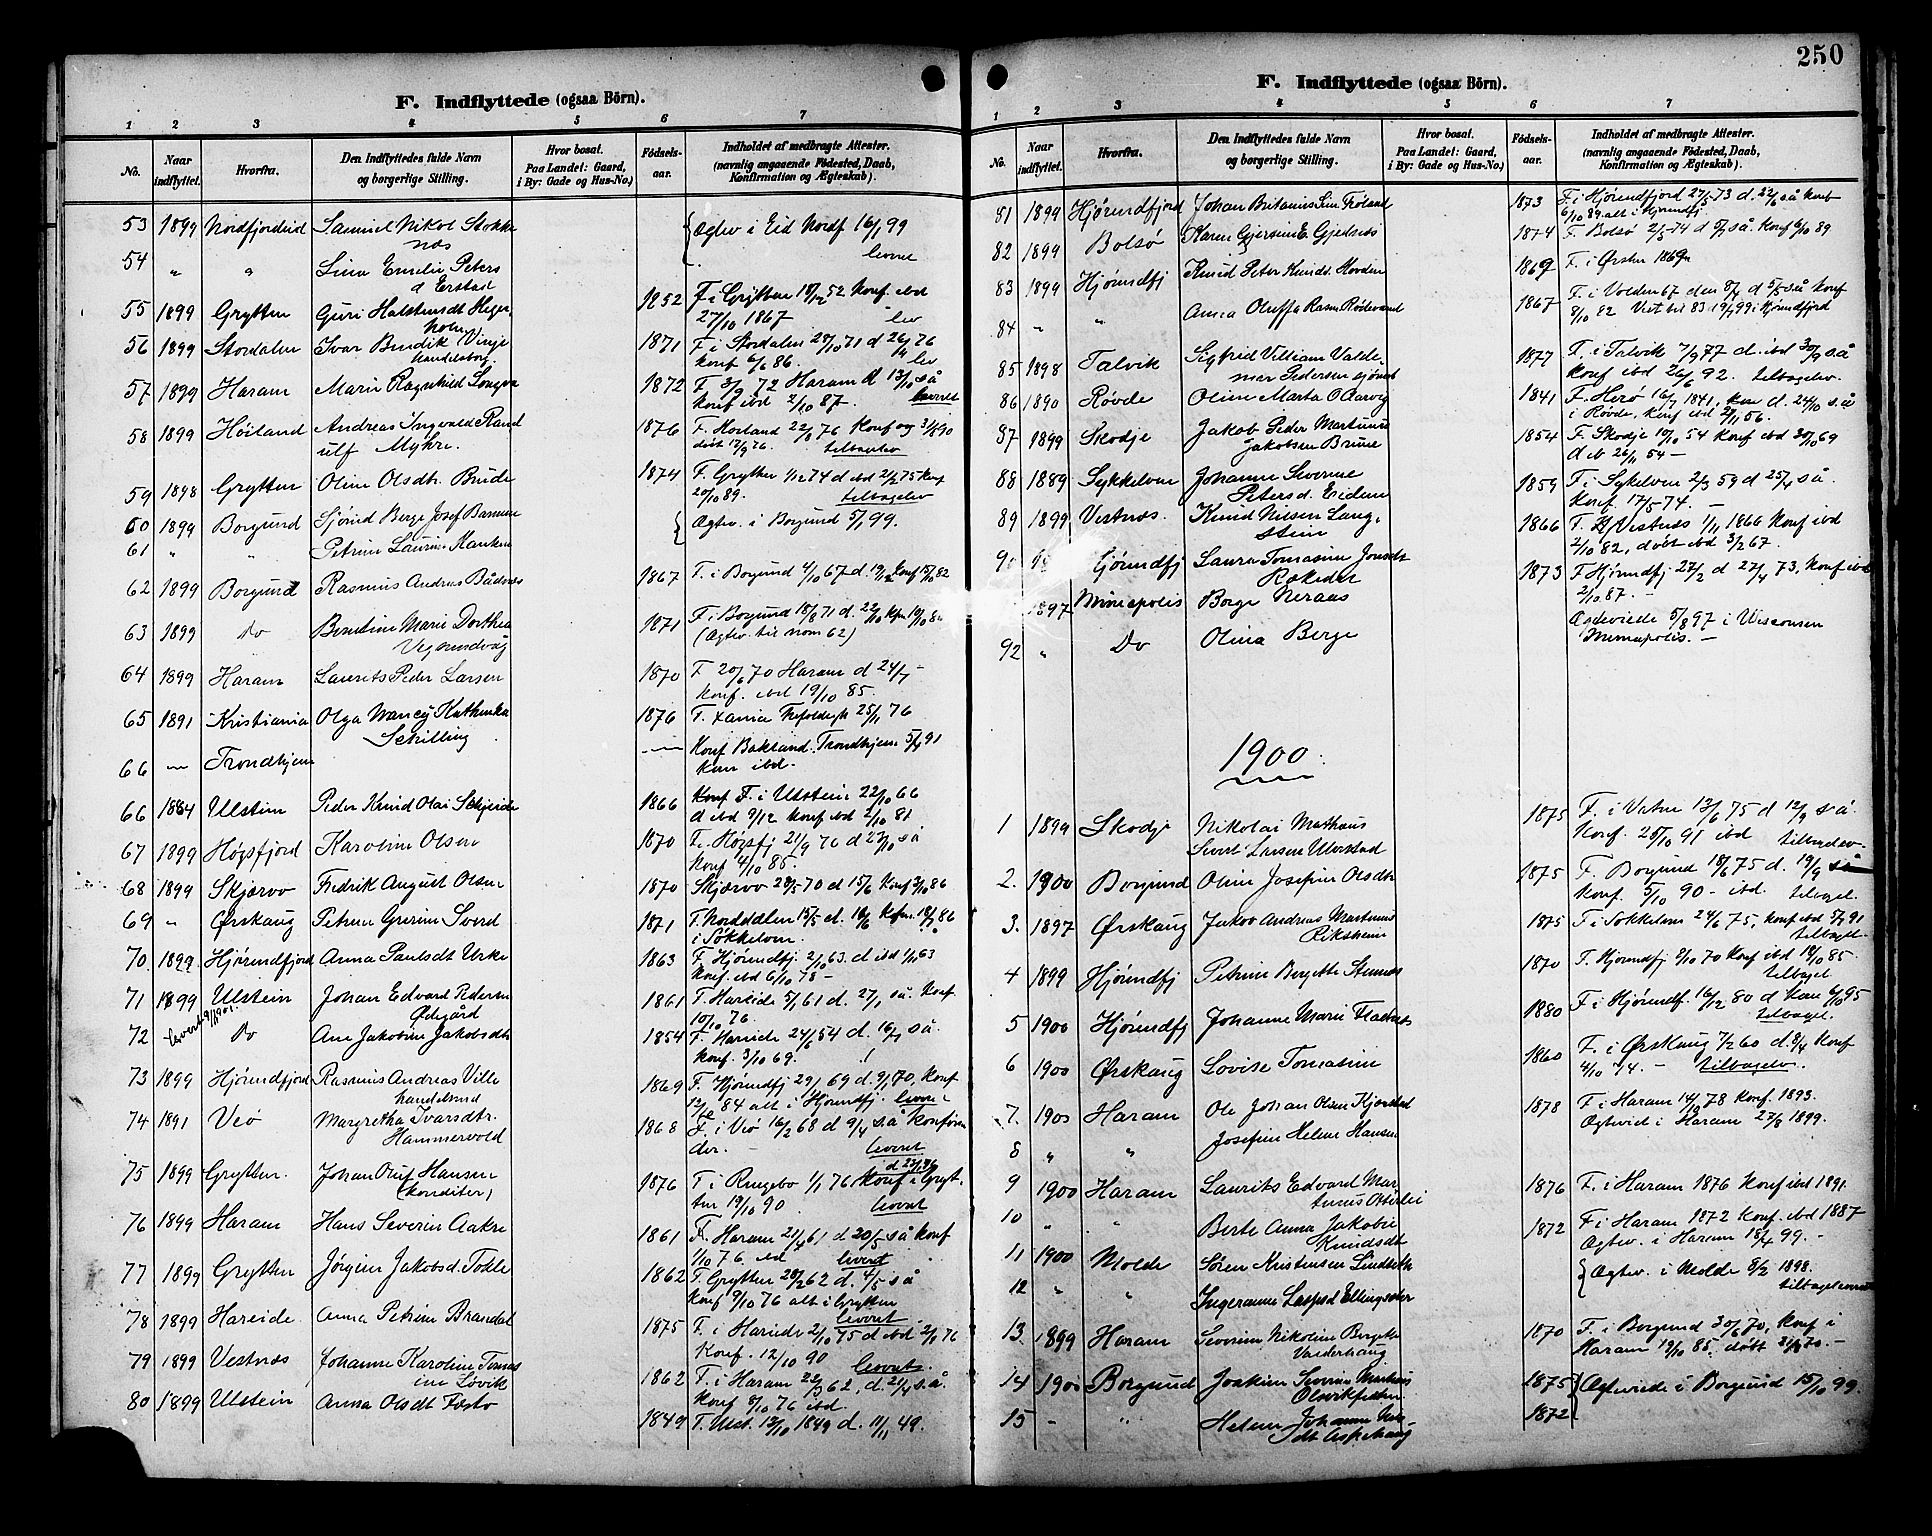 250
F. Indflyttede (ogsaa Börn).
1 2 3 4 5 6 7
No. Naar indflyttet. Hvorfra. Den Indflyttedes fulde Navn og borgerlige Stilling. Hvor bosat. Paa Landet: Gaard, i By: Gade og Hus-No.) Födsels-aar. Indholdet af medbragte Attester. (navnlig angaaende Födested, Daab, Konfirmation og Ægteskab).
53 1899 Nordfjordeid Samuel Nikol Stokke
næs
Ægtev i Eid Nordf 16/1 99
levne
54 " " Lina Emilie Peters
d Erstad
55 1899 Grytten Guri Halstensdt Heger
holm
1852 F. i Grytten 52 Konf. ibd
27/10 1867 lev
56 1899 Stordalen Ivar Bendik Vinje
handelsborg
1871 F i Stordalen 71 d
Konf 6/6 86. lev
57 1899 Haram Marie Ragnhild Longva
1872 F. 3/9 72 Haram d 13/10 så
konf ibd 2/10 87. levret
58 1899 Höiland Andreas Ingvald Rand
ulf Myhre.
1876 F. Hoiland 22/8 76 Konf og
döbt 17/9 76. tilbagelev
59 1898 Grytten Oline Olsdtr. Brude
1874 F. Grytten 74 d ibd 75 Konf
20/10 89. tilbagelev
60 1899 Borgund Sjönd Berge Josef
Ægtev. i Borgund 5/1 99.
61 " " Petrine Laurine
62 1899 Borgund Rasmus Andreas Bådsnes
1867 F. i Borgund 4/10 67 d. Konf 82
63 1899 Do Bendine Marie Dorthea
Vegsundvåg
1871 F. i Borgund 18/8 71 d. 22/10 Kon
(Ægtev. til nom 62)
64 1899 Haram Laurits Peder Larsen
1870 F 20/6 70 Haram d 24/7 -
Konf. ibd 19/10 85.
65 1891 Kristiania Olga Nancy Kathinka
Schilling
1876 F. Xania Trefoldigh 25/11 76
66 — Trondhjem
— Konf Bakland. Trondhjem 5/4 91
kun ibd.
66 1884 Ulstein Peder Knud Olai
1866 F. i Ulstein 22/10 66
d ibd 9/12 Konf ibd 2/10 81
67 1899 Høgsfjord Karoline Olsen
1870 F. Høgsfj 21/9 d så
Konf 4/10 85.
68 1899 Skjærvø Fredrik August Olsen
1870 Skjærvø 70 d 15/6 Konf 86
69 " Ørskaug Petrine Sverd
1871 F. Norddalen 15/5 d. Kofm. 86
i Søkkelven.
70 1899 Hjørundfjord Anna Paulsdt Urke
1863 F. Hjørundfj 2/10 63. d ibd 63
Konf. ibd 6/10 78 -
71 1899 Ulstein Johan Edvard Pedersen
Ødegård
1861 F. Hareide 5/1 61 d. 27/1 så. Konf
10/10 76.
72 Do Ane Jakobine Jakobsdtr
1854 F. Hareide 24/6 54 d. 16/7 så.
Konf. 3/10 69.
73 1899 Hjørundfjord Rasmus Andreas Ville
handelsmd
1869 F. Hjørundfj 29/1 69 d. 9/1 70. konf
84 alt i Hjørundfj. levne
74 1891 Veø Margretha Ivarsdtr.
Hammervold
1868 F. i Veø 16/2 68 d 9/4 så konf
der. - levret
75 1899 Grytten. Johan Oluf Hansen
(konditor)
1876 F. i Ringebo 1/1 76 Konf i Gryt-
ten 19/10 90. levret
76 1899 Haram Hans Severin Aakre
1861 F. Haram 21/4 61 d 20/5 så konf
1/10 76 ibd levret
77 1899 Grytten Jørgine Jakobsd. Tokle
1862 F. Grytten 62 d. 4/5 så
Konf 9/10 76 alt i Grytten
levret
78 1899 Hareide. Anna Petrine Brandal
1875 F. i Hareide 2/10 75 d ibd 76
Konf. 12/10 90 levret.
79 1899 Vestnæs Johanne Karoline Tomas
ine Løvik
1862 F. i Haram 62, d. 21/4 så.
Konf 8/10 76 ibd.
80 1899 Ulstein Anna Olsdt
1849 F. Ulst. 13/10 1849 d. 11/11 49.
F. Indflyttede (ogsaa Börn).
1 2 3 4 5 6 7
No. Naar indflyttet. Hvorfra. Den Indflyttedes fulde Navn og borgerlige Stilling. Hvor bosat. Paa Landet: Gaard, i By: Gade og Hus-No.) Födsels-aar. Indholdet af medbragte Attester. (navnlig angaaende Födested, Daab, Konfirmation og Ægteskab).
81 1899 Hjørundfjord Johan Britanius
1873 F. i Hjørundfjord 73 d. så Konf
6/10 89 alt i Hjørundfj.
82 1899 Bolsø Karen
1874 F. Bolsø 74 d så. Konf 89
83 1899 Hjørundfj Knud Peter Knuds. Hovden
1869 F. i Ørsten 1869
84 " " Anna Oluffa Rasm. Rödsvand
1867 F. i Volden 67 d så konf
8/10 82 Viet til 83 99 i Hjørundfjord
85 1898 Talvik Sigfrid Villiam Valde
mar Pedersen sjömd
1877 F. i Talvik 7/9 77 d. ibd 30/9 så
Konf ibd 26/6 92. tilbagelev.
86 1890 Røvde Oline Marta O Aarvig
1841 F. Herø 1841, d. 24/10 så
i Røvde, konf ibd 56.
87 1899 Skodje Jakob Peder Martinus
Jakobsen Brune
1854 F. Skodje 10/10 54 konf ibd 69
d ib 26/11 54 —
88 1889 Sykkelven Johanne Severine
Petersd. Eidem
1859 F. i Sykelven 2/3 59 d 25/4 så.
Konf. 17/5 74. -
89 1899 Vestnæs. Knud Nilsen Lang.
stein
1866 F. Vestnæs 1/11 1866 Konf ibd
2/10 82, döbt ibd 3/2 67.
90 Hjørundfj Laura Tomasine Jonsdt
Rekedal
1873 F. Hjørundfj 27/2 d 27/4 73, Konf ibd
2/10 87. -
1897 Minneapolis Borge Neraas
Ægteviede 5/8 97 i Wisconsen
Minneapolis. -
92 " Do Olina Berge
1900.
1 1899 Skodje Nikolai Mathæus
Sivert Larsen Ulvestad
1875 F. i Vatne 13/6 75 d 12/9 så
Konf. 91 ibd tilbagelev.
2. 1900 Borgund Oline Josefine Olsdtr
1875 F. Borgund 18/6 75 d. 19/9 så
Konf. 5/10 90 - ibd. tilbagel.
3. 1897 Ørskaug Jakob Andreas Martinus
Riksheim
1875 F i Søkkelven 24/6 75, Konf ibd 91
tilbagel.
4 1899 Hjørundfj Petrine Bergitte
1870 F. Hjørundfj 9/10 70 Konf ibd 85.
tilbagel
5 1900 Hjørundfj Johanne Marie
1880 F. i Hjørundf. 16/12 80 d Kon 6/10 95
tilbagel.
6 1900 Ørskaug Lovise Tomasine
1860 F. i Ørskaug 7/2 60 d. 8/4 Konf
4/10 74. - tilbagelev.
7. 1900 Haram Ole Johan Olsen Fjørtoft
1878 F. i Haram 78 Konf. 1893.
Ægtevid i Haram 1899.
8 " " Josefine Helene Hansen
9 1900 Haram Laurits Edvard Mar
tinus
1876 F. i Haram 1876 Konf ibd 1891.
10 " " Berte Anna Jakobie
Knudsdt
1872 F i Haram 1872 Konf. ibd 1887
Ægtev. i Haram 18/4 99. -
11 1900 Molde Søren Kristensen Lindbeck
Ægtev. i Molde 8/2 1898.
tilbagelevret
12 " " Ingeranna
13. 1899 Haram Severine Nikoline Bergitte
Valderhaug
1870 F. i Borgund 30/6 70, konf i
Haram 19/10 85. döbt 70. -
14 1900 Borgund Joakim Severin
1875 Ægteviede i Borgund 15/10 99.
15 - " Helene Johanne
dt Aspehaug
1872